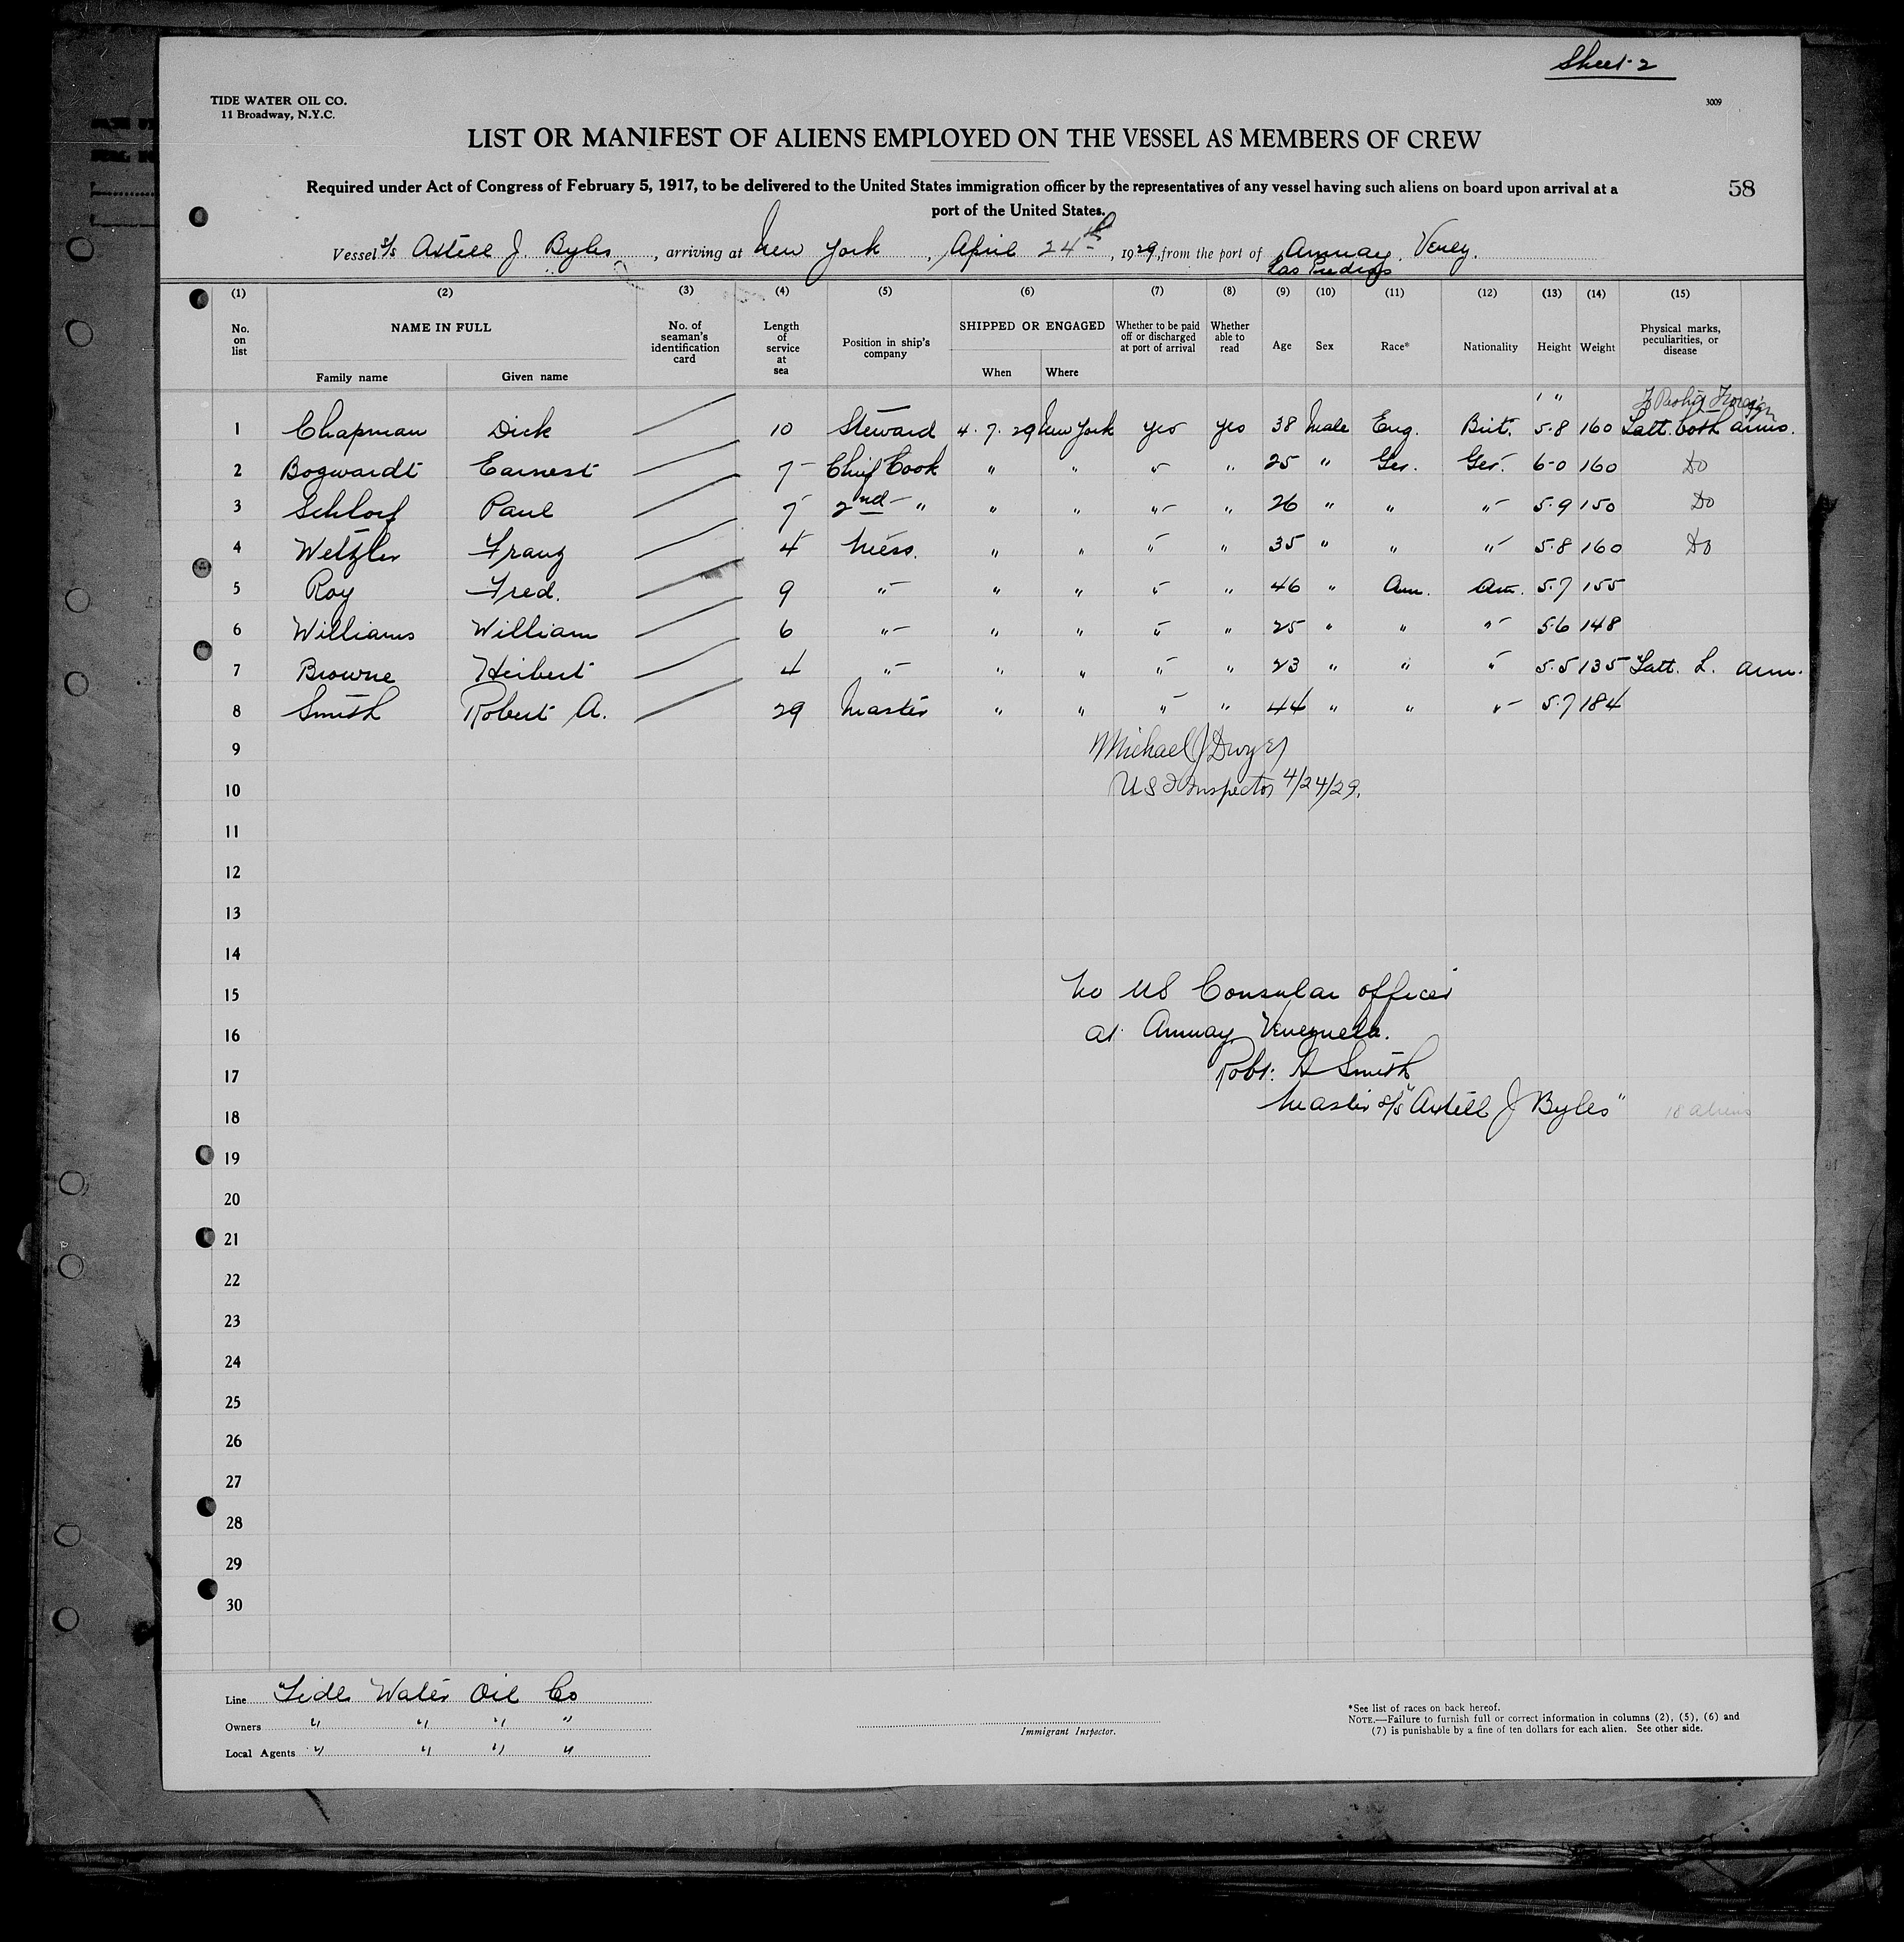 Sheet-2
TIDE WATER OIL CO.
11 Broadway, N.Y.C.
3009
LIST OR MANIFEST OF ALIENS EMPLOYED ON THE VESSEL AS MEMBERS OF CREW
Required under Act of Congress of February 5, 1917, to be delivered to the United States immigration officer by the representatives of any vessel having such aliens on board upon arrival at a
port of the United States.
58
Vessel S/S Axtell J. Byles, arriving at New York, April 24th, 1929, from the port of Amuay, Venez.
Las Piedras
(1) (2) (3) (4) (5) (6) (7) (8) (9) (10) (11) (12) (13) (14) (15)
No. on list NAME IN FULL No. of seaman's identification card Length of service at sea Position in ship's company SHIPPED OR ENGAGED Whether to be paid off or discharged at port of arrival Whether able to read Age Sex Race* Nationality Height Weight Physical marks, peculiarities, or disease
Family name Given name When Where
' "
1 Chapman Dick 10 Steward 4.7.29 New York yes yes 38 Male Eng. Brit. 5-8 160 Tatt. both arms.
2 Bogwardt Earnest 7 Chief Cook " " " " 25 " Ger. Ger. 6-0 160 Do
3 Schlorf Paul 7 2nd " " " " " 26 " " " 5-9 150 Do
4 Wetzler Franz 4 Mess. " " " " 35 " " " 5-8 160 Do
5 Roy Fred. 9 " " " " " 46 " Am. Am. 5-7 155
6 Williams William 6 " " " " " 25 " " " 5-6 148
7 Browne Heibert 4 " " " " " 23 " " " 5-5 135 Tatt. L. arm.
8 Smith Robert A. 29 Master " " " " 44 " " " 5-7 184
9 Michael J Dwyer
10 US I Inspector 4/24/29.
11
12
13
14
15 No US Consular officer
16 at Amuay Venezuela.
17 Robt. A Smith
18 Master S/S "Axtell J Byles" 18 aliens
19
20
21
22
23
24
25
26
27
28
29
30
Line Tide Water Oil Co
Owners " " " "
Local Agents " " " "
Immigrant Inspector.
*See list of races on back hereof.
NOTE.—Failure to furnish full or correct information in columns (2), (5), (6) and
(7) is punishable by a fine of ten dollars for each alien. See other side.